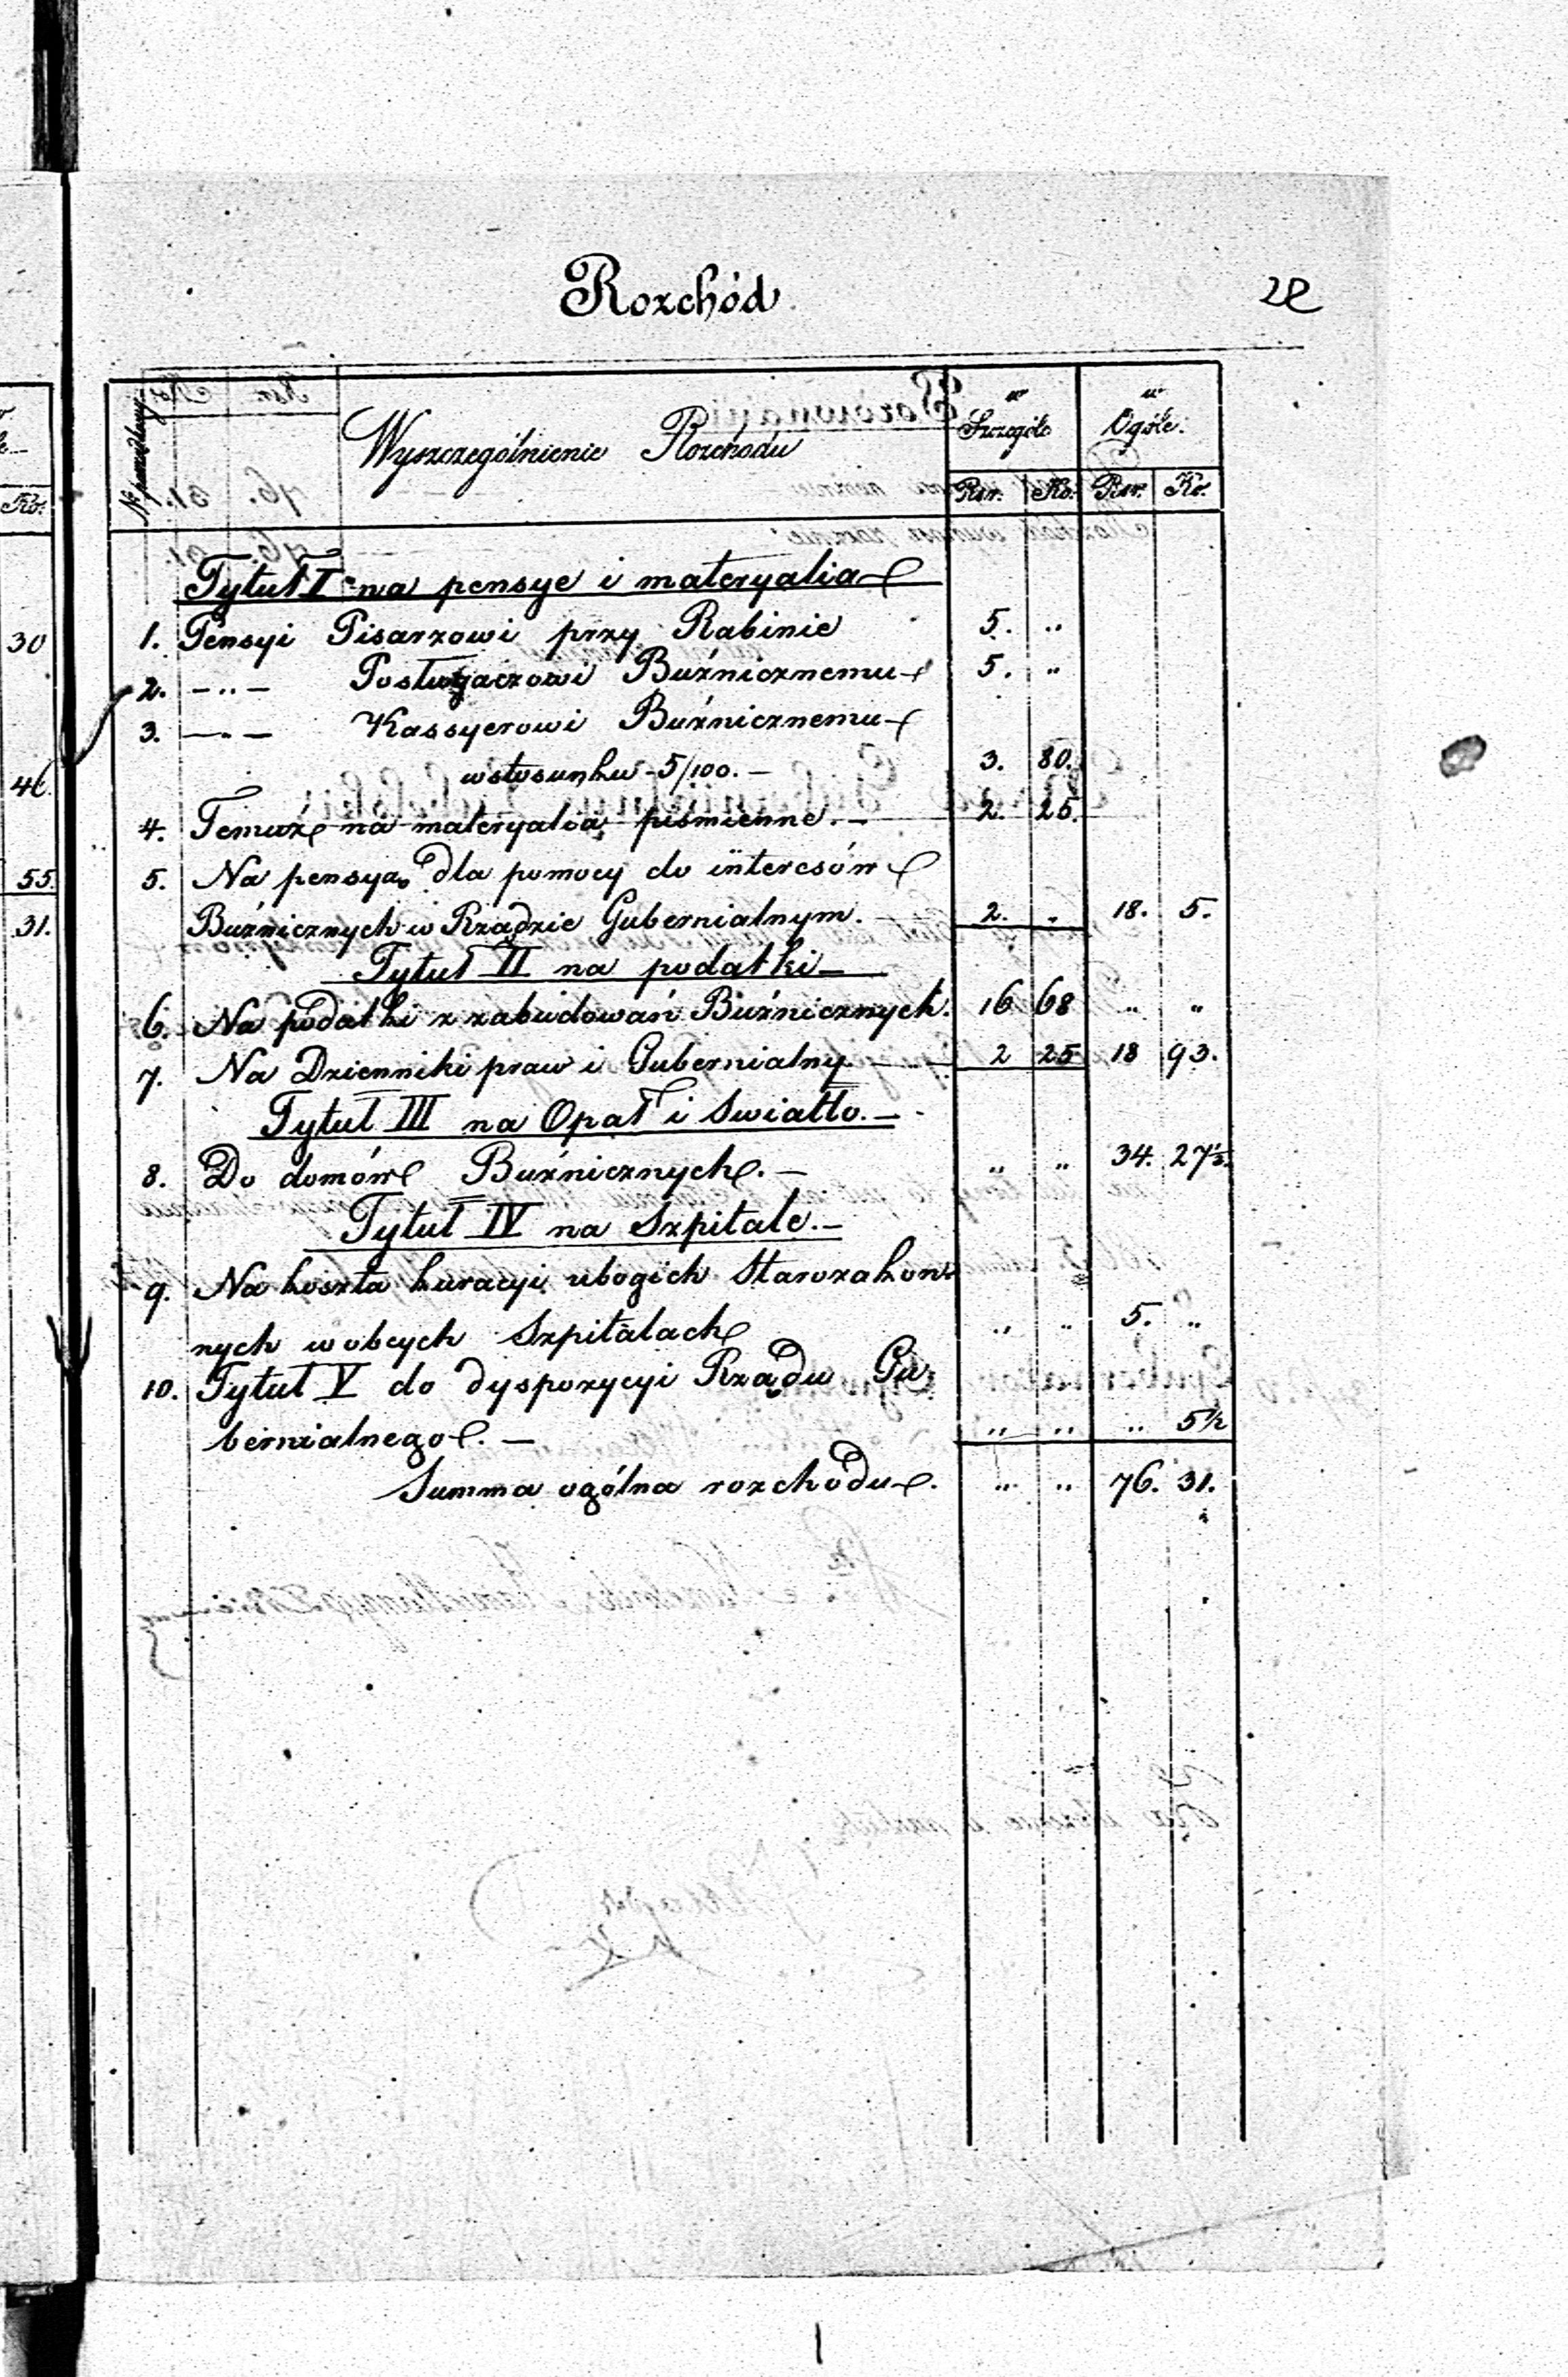 Rozchód
№ porządkowy
Wyszczególnienie Rozchodu
w Szczególe
w Ogóle.
Rsr. Ko. Rsr. Ko.
Tytuł I na pensye i materyalia
1. Pensyi Pisarzowi przy Rabinie 5. „
2. — „ — Posługaczowi Bużnicznemu 5. „
3. — „ — Kassyerowi Bużnicznemu
w stosunku 5/100. — 3. 80.
4. Temuż na materyalia piśmienne. — 2. 25.
5. Na pensyą dla pomocy do interesów
Bużnicznych w Rządzie Gubernialnym. 2. „ 18. 5.
Tytuł II na podatki —
6. Na podatki z zabudowań Bużnicznych. 16 68 „ „
7. Na Dzienniki praw i Gubernialny — 2 25 18 93.
Tytuł III na Opał i światło. —
8. Do domów Bużnicznych. — „ „ 34. 27½.
Tytuł IV na Szpitale. —
9. Na koszta kuracyi ubogich Starozakon
nych w obcych Szpitalach „ „ 5. „
10. Tytuł V do dyspozycyi Rządu Gu
bernialnego. — „ „ „ 5½
Summa ogólna rozchodu. „ „ 76. 31.
Ko.
30
46.
55.
31.